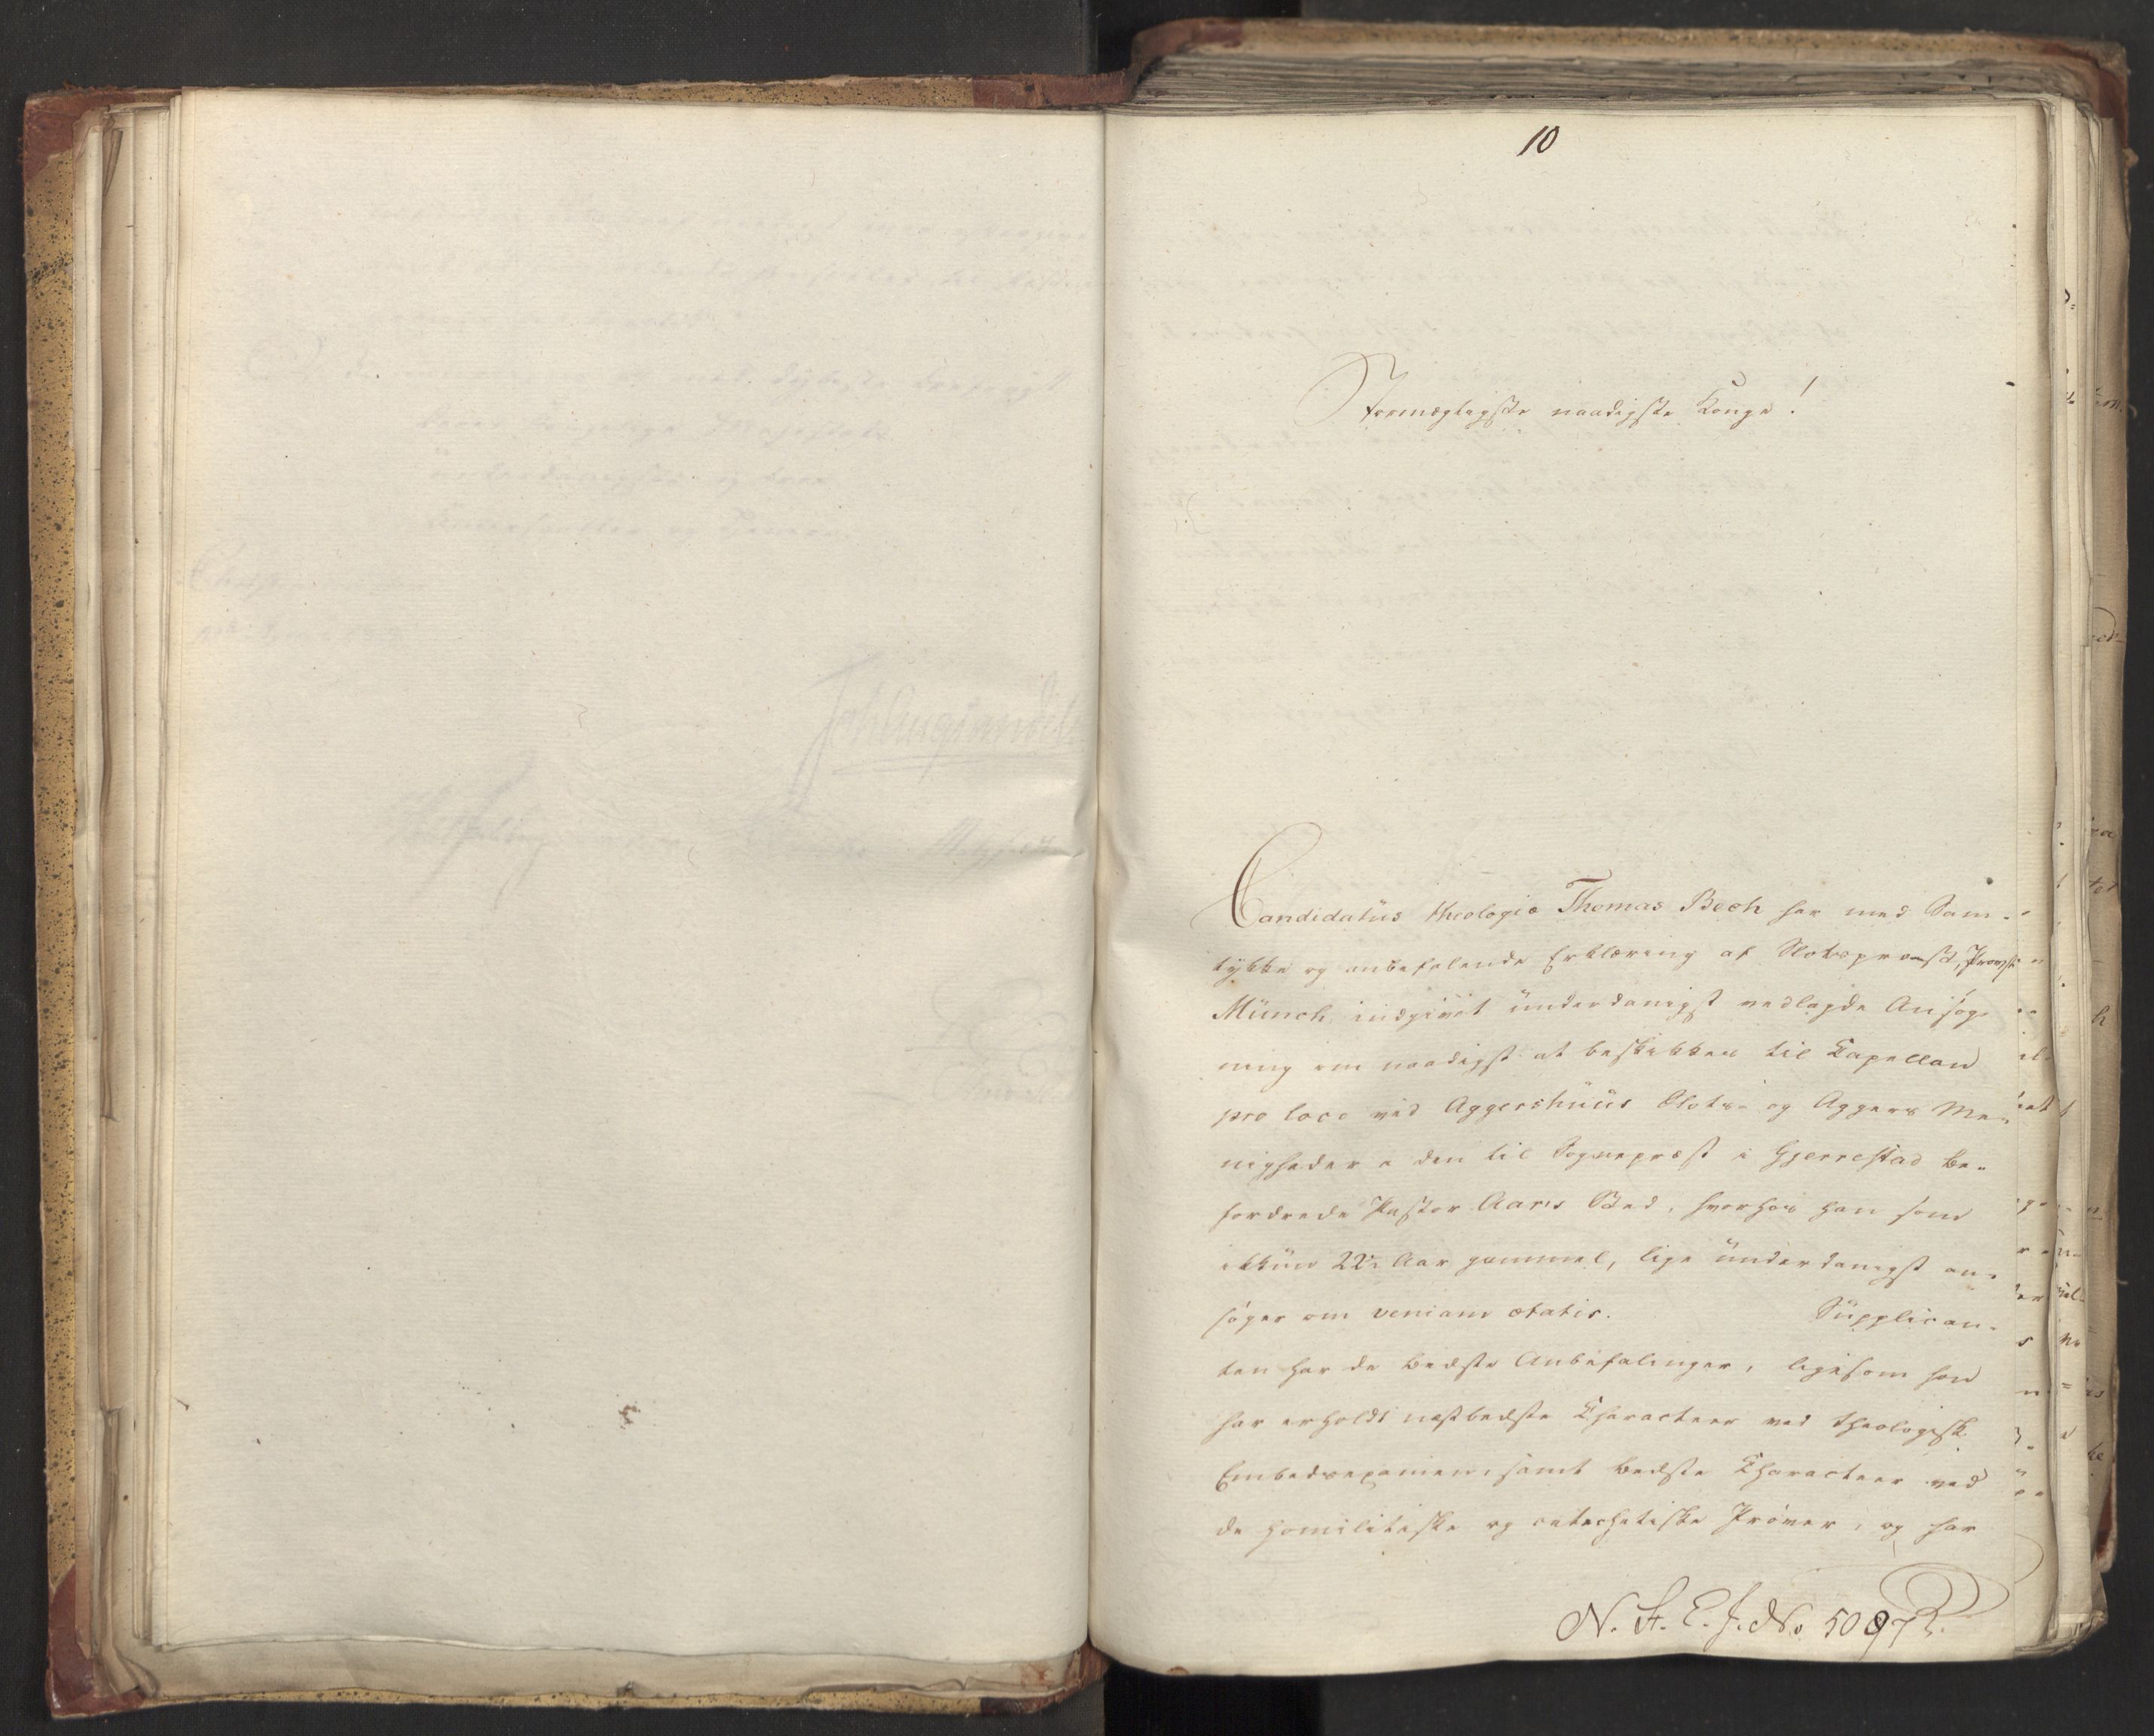 10
Stormægtigste naadigste Konge!
Candidatus theologiæ Thomas Bech har med Sam-
tykke og anbefalende Erklæring af Slotsprovst, Provst
Münch indgivet ünderdanigst vedlagde Ansøg-
ning om naadigst at beskikkes til Kapellan
pro loco ved Aggershuüs Slots- og Aggers Me-
nigheder i den til Sognepræst i Gjerrestad be-
fordrede Pastor Aars Sted, hvorhos han som
ikkün 22½ Aar gammel, lige ünderdanigst an-
søger om veniam ætatis. Süpplican-
ten har de bedste Anbefalinger, ligesom han
har erholdt næstbedste Characteer ved theologisk
Embedsexamen, samt bedste Characteer ved
de homilitiske og catechetiske Prøver, og har
N. St. E. J. No 5097